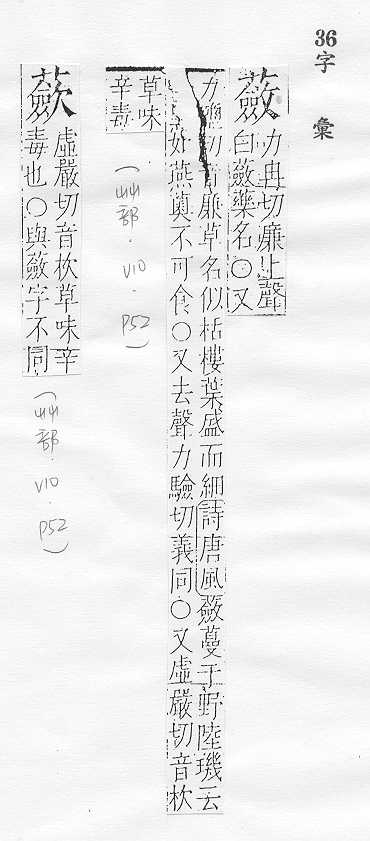 36 字彙
蘞 力冉切廉上聲
白蘞藥名〇又
力鹽切音廉草名似栝樓葉盛而細詩唐風蘞蔓于野陸璣云
如燕薁不可食〇又去聲力驗切義同〇又虛嚴切音杴
草味
辛毒
(艸部.V10.P52)
虛嚴切音杴草味辛
毒也〇與蘞字不同
(艸部.V10.P52)